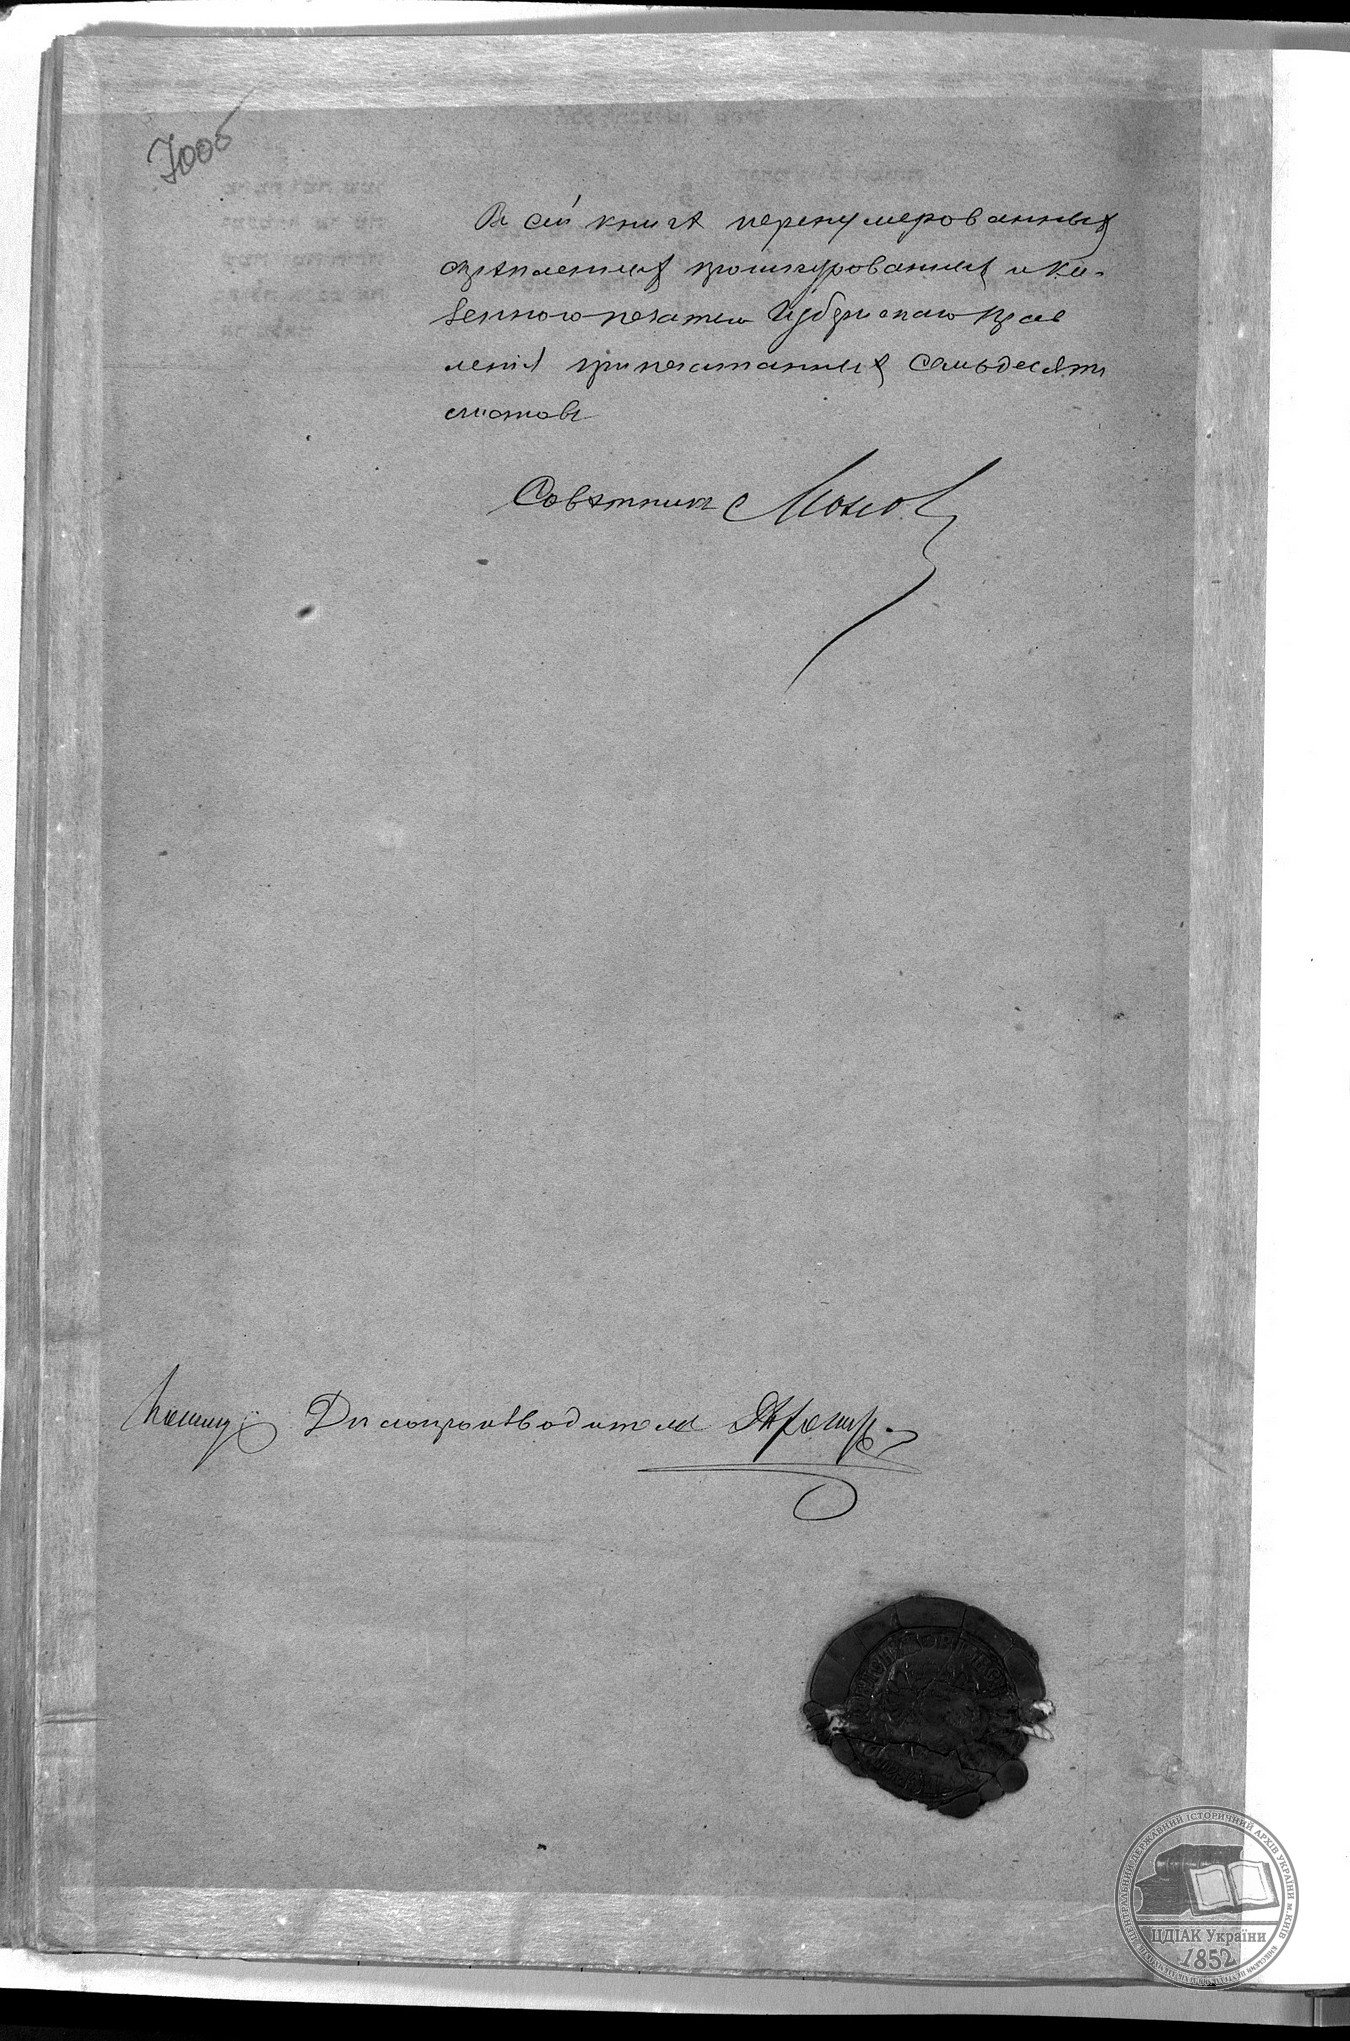 70об
В сей книгѣ перенумерованныхъ
скрѣпленныхъ прошнурованныхъ и ка-
зенною печатью Губернскаго Прав
ленія припечатанныхъ семьдесятъ
листовъ
Совѣтникъ
Дѣлопроизводителя
ЦЕНТРАЛЬНИЙ ДЕРЖАВНИЙ ІСТОРИЧНИЙ АРХІВ УКРАЇНИ м.КИЇВ
ЦДІАК України
1852